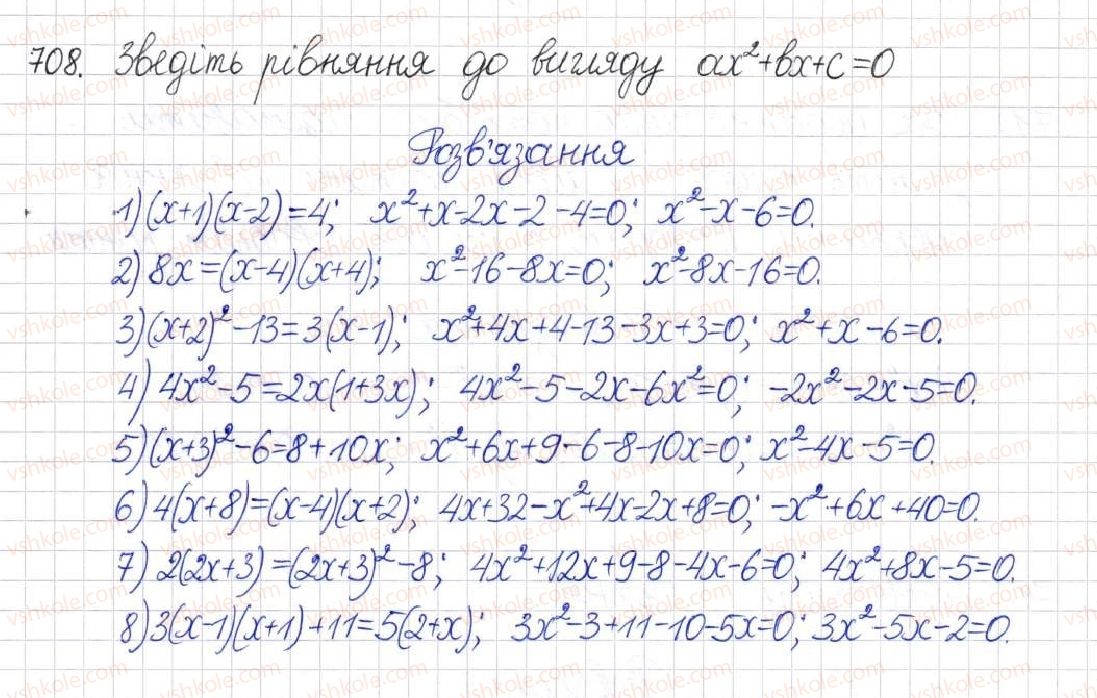 708. Зведіть рівняння до вигляду ax²+bx+c=0
Розв'язання
1) (x+1)(x-2)=4; x²+x-2x-2-4=0; x²-x-6=0.
2) 8x=(x-4)(x+4); x²-16-8x=0; x²-8x-16=0.
3) (x+2)²-13=3(x-1); x²+4x+4-13-3x+3=0; x²+x-6=0.
4) 4x²-5=2x(1+3x); 4x²-5-2x-6x²=0; -2x²-2x-5=0.
5) (x+3)²-6=8+10x; x²+6x+9-6-8-10x=0; x²-4x-5=0.
6) 4(x+8)=(x-4)(x+2); 4x+32-x²+4x-2x+8=0; -x²+6x+40=0.
7) 2(2x+3)=(2x+3)²-8; 4x²+12x+9-8-4x-6=0; 4x²+8x-5=0.
8) 3(x-1)(x+1)+11=5(2+x); 3x²-3+11-10-5x=0; 3x²-5x-2=0.